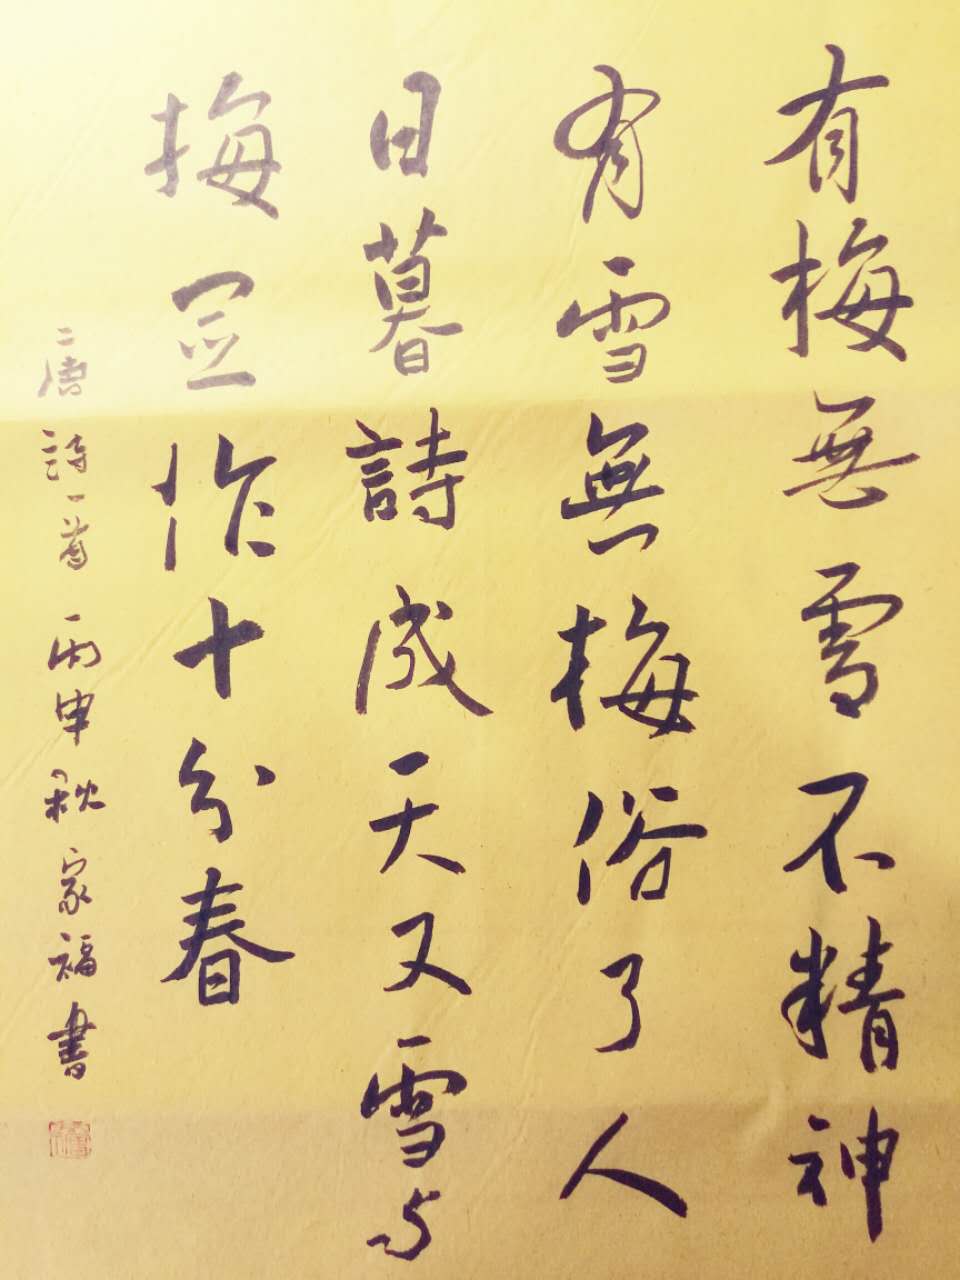 有梅無雪不精神
有雪無梅俗了人
日暮詩成天又雪与
梅並作十分春
唐詩一首丙申秋家福書